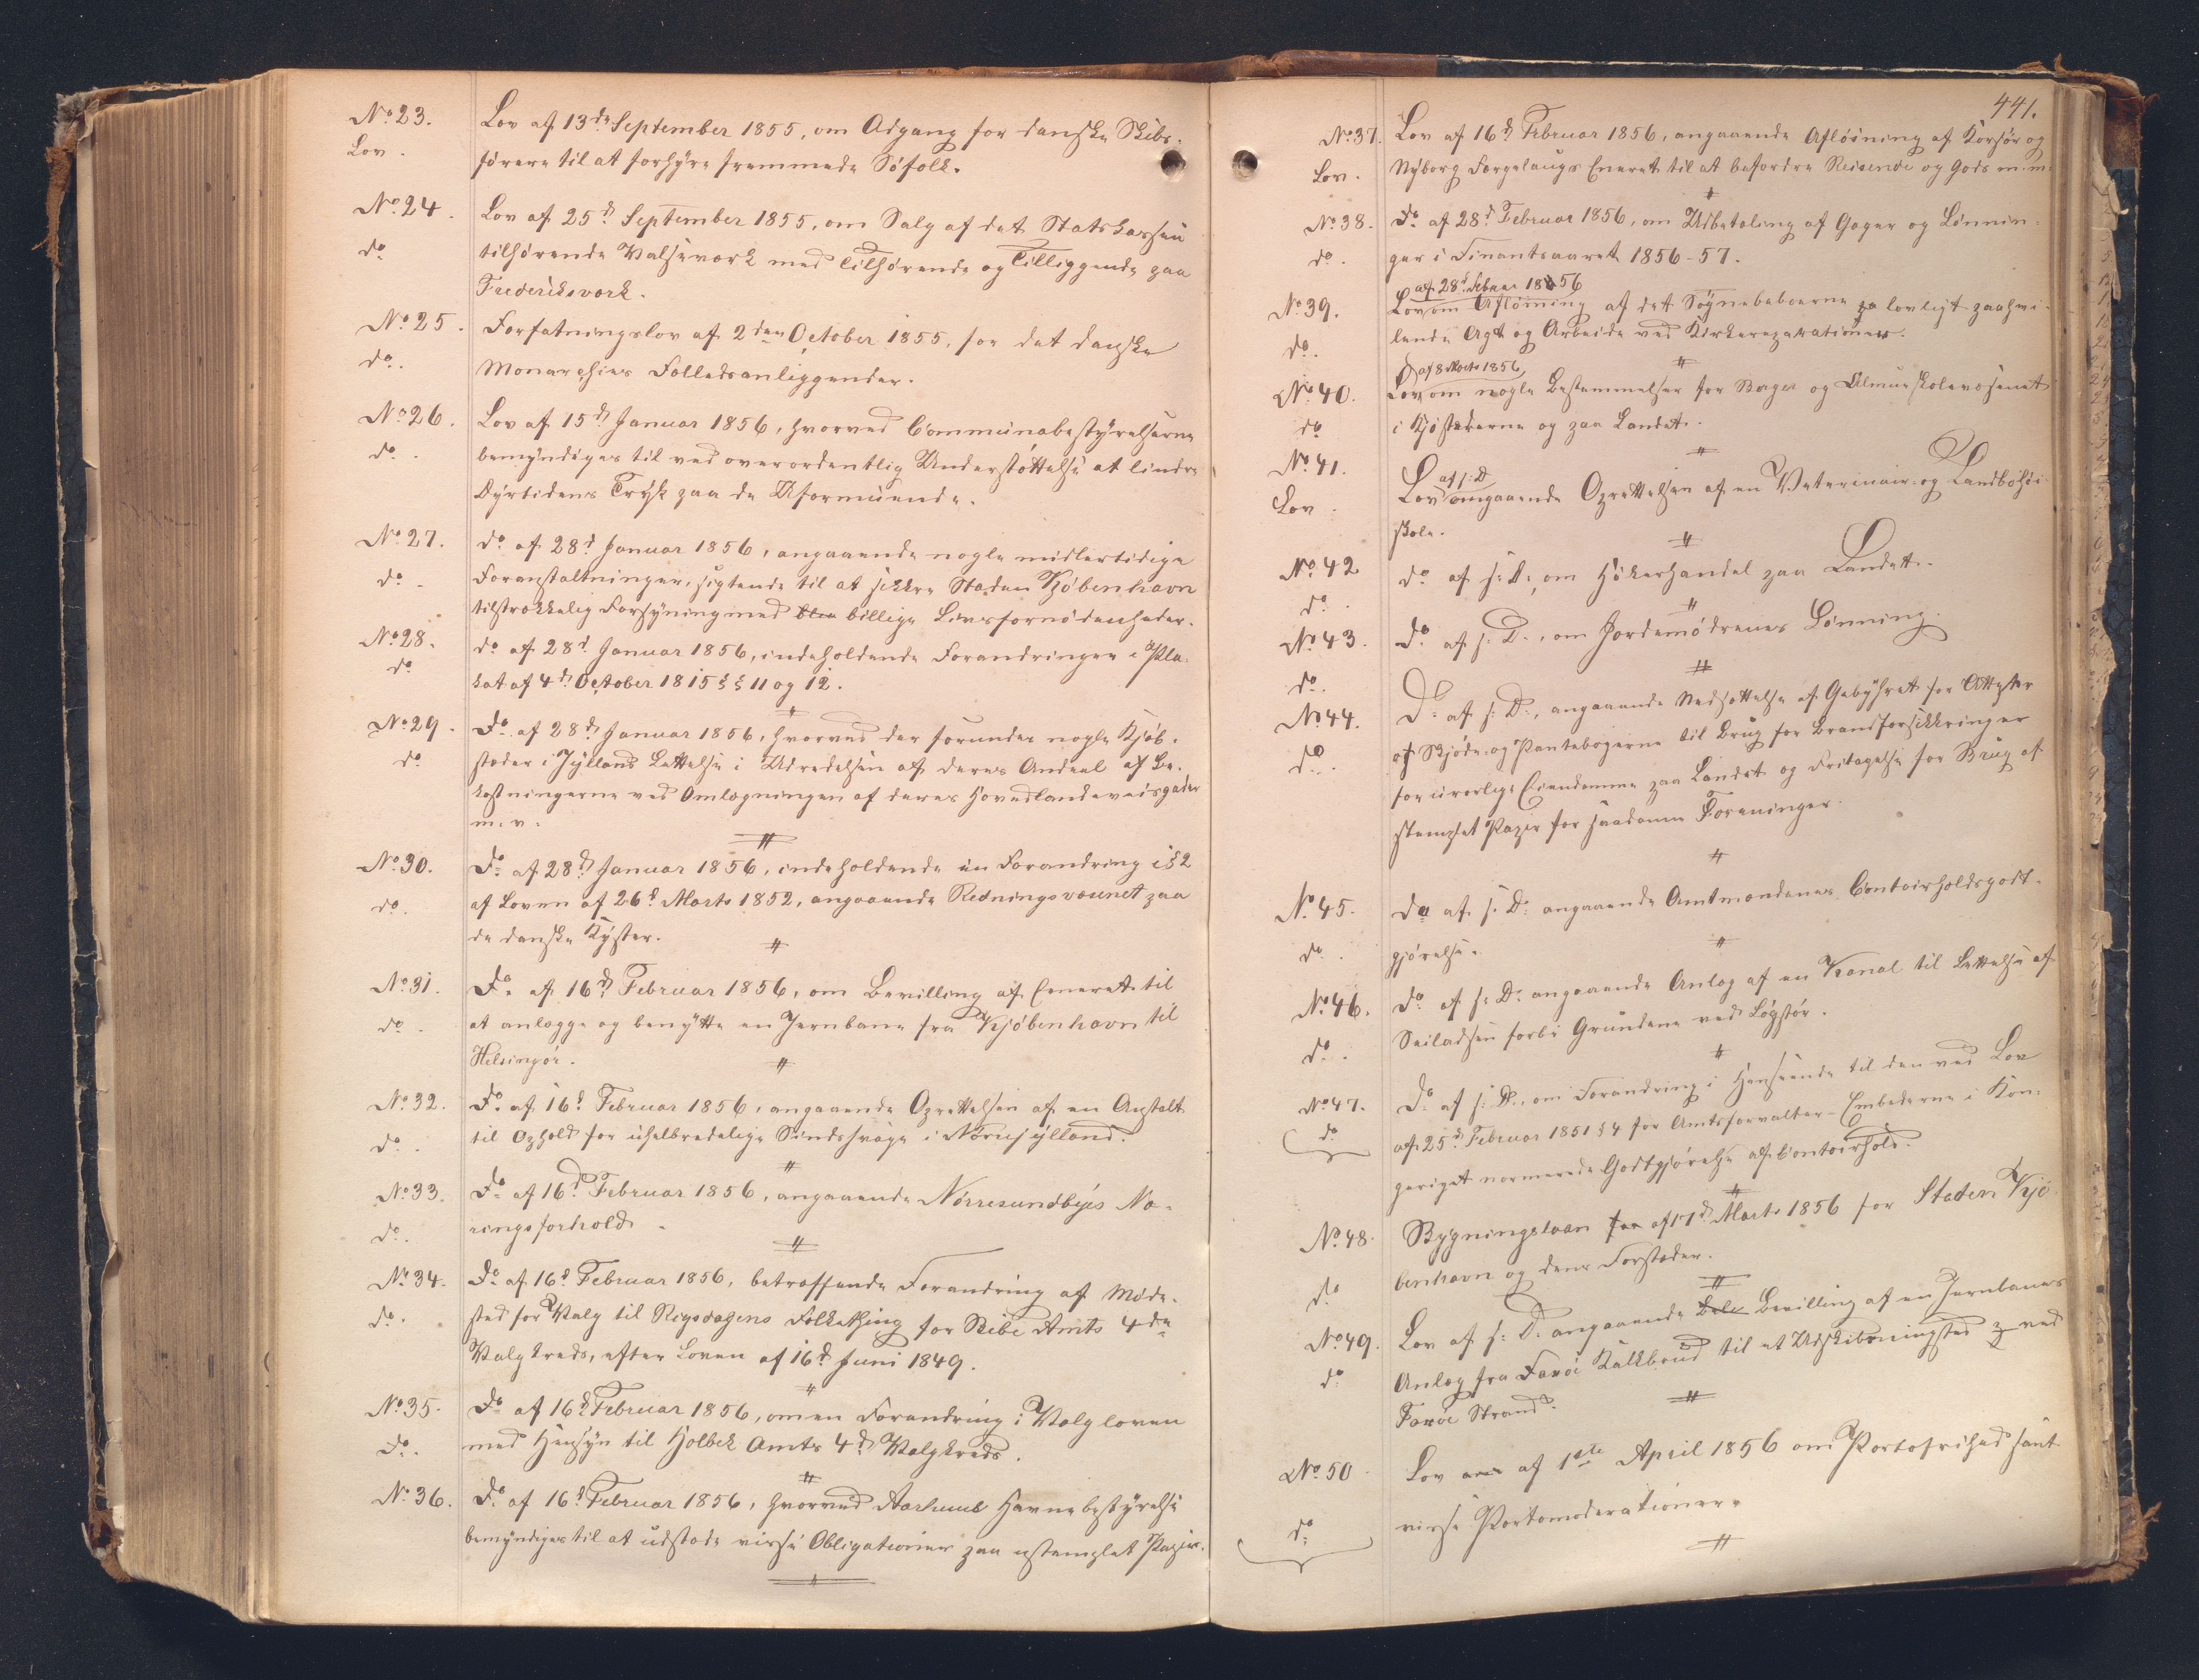 No 23.
Lov.
Lov af 13de September 1855, om Adgang for danske Skibs-
førere til at forhyre fremmede Søfolk.
No 24.
do
Lov af 25d September 1855, om Salg af det Statskassen
tilhørende Valseværk med Tilhørende og Tilliggende paa
Frederiksværk.
No 25.
do.
Forfatningslov af 2den October 1855, for det danske
Monarchies Fællesanliggender.
No 26.
do.
Lov af 15d Januar 1856, hvorved Communebestyrelserne
bemyndiges til ved overordentlig Understøttelse at lindre
Dyrtidens Tryk paa de Uformuende.
No 27.
do.
do af 28d Januar 1856, angaaende nogle midlertidige
Foranstaltninger, sigtende til at sikkre Staden Kjøbenhavn
tilstrækkelig Forsyning med billige Livsfornødenheder.
No 28.
do
do af 28d Januar 1856, indeholdende Forandringer i Pla-
kat af 4d October 1815 §§ 11 og 12.
No 29.
do
Do af 28d Januar 1856, hvorved der forundes nogle Kjøb-
stæder i Jylland Lettelse i Udredelsen af deres Andeel af Be-
kostningerne ved Omlægningen af deres Hovedlandeveisgader
m. v.
No 30.
do.
Do af 28d Januar 1856, indeholdende en Forandring i § 2
af Loven af 26d Marts 1852, angaaende Redningsvæsenet paa
de danske Kyster.
No 31.
do.
Do af 16d Februar 1856, om Bevilling af Eneret til
at anlægge og benytte en Jernbane fra Kjøbenhavn til
Helsingør.
No 32.
do.
Do af 16d Februar 1856, angaaende Oprettelsen af en Anstalt
til Ophold for uhelbredelige Sindssvage i Nørrejylland.
No 33.
do.
Do af 16d Februar 1856, angaaende Nørresundbyes Næ-
ringsforhold.
No 34.
do.
Do af 16d Februar 1856, betræffende Forandring af Møde-
sted for Valg til Rigsdagens Folkething for Ribe Amts 4de
Valgkreds, efter Loven af 16d Juni 1849.
No 35.
do.
Do af 16d Februar 1856, om en Forandring i Valgloven
med Hensyn til Holbek Amts 4d Valgkreds.
No 36.
Do af 16d Februar 1856, hvorved Aarhuus Havnebestyrelse
bemyndiges til at udstede visse Obligationer paa ustemplet Papir.
441.
No 37.
Lov.
Lov af 16d Februar 1856, angaaende Afløsning af Korsør og
Nyborg Færgelaugs Eneret til at befordre Reisende og Gods m. m.
No 38.
do.
Do af 28d Februar 1856, om Udbetaling af Gager og Lønnin-
ger i Finantsaaret 1856-57.
No 39.
do.
af 28d Februar 1856
Lov om Afløsning af det Sognebeboerne lovligt paahvi-
lende Agt og Arbeide ved Kirkereparationer.
No 40.
do
af 8 Marts 1856
Lov om nogle Bestemmelser for Borger og Almueskolevæsenet
i Kjøbstæderne og paa Landet.
No 41.
Lov.
af s: D
Lov angaaende Oprettelsen af en Veterinair- og Landbohøi-
skole.
No 42
do.
do af s: D, om Høkerhandel paa Landet.
No 43.
do.
Do af s: D., om Jordemødrenes Lønning.
No 44.
do.
Do af s: D:, angaaende Nedsættelse af Gebyhret for Attester
af Skjøde- og Pantebøgerne til Brug for Brandforsikkringer
for urørlige Eiendomme paa Landet og Fritagelse for Brug af
stemplet Papir for saadanne Foreninger.
No 45.
do.
Do af s: D: angaaende Amtmændenes Contoirholdsgodt-
gjørelse.
No 46.
do.
Do af s: D: angaaende Anlæg af en Kanal til Lettelse af
Seiladsen forbi Grundene ved Løgstør.
No 47.
do
Do af s: D., om Forandring i Henseende til den ved Lov
af 25d Februar 1851 § 4 for Amtsforvalter-Embederne i Kon-
geriget normerede Godtgjørelse af Contoirhold.
No 48.
do
Bygningsloven af 17d Marts 1856 for Staden Kjø-
benhavn og dens Forstæder.
No 49.
do
Lov af s: D. angaaende Bevilling af en Jernbanes
Anlæg fra Faxøe Kalkbrud til et Udskibningssted ved
Faxøe Strand.
No 50
do
Lov af 1ste April 1856 om Portofrihed samt
visse Portomoderationer.